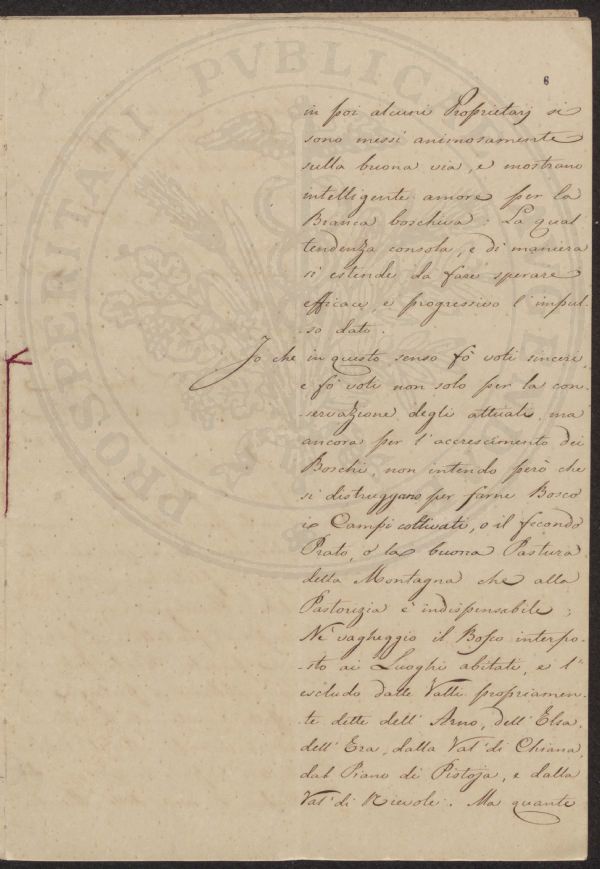 6
in poi alcuni Proprietarj si
sono messi animosamente
sulla buona via, e mostrano
intelligente amore per la
Branca boschiva. La qual
tendenza consola, e di maniera
si estende da fare sperare
efficace, e progressivo l'impul-
-so dato.
Io che in questo senso fò voti sinceri,
e fò voti non solo per la con-
-servazione degli attuali ma
ancora per l'accrescimento dei
Boschi, non intendo però che
si distruggano per farne Bosco
i Campi coltivati, o il fecondo
Prato, o la buona Pastura
della Montagna che alla
Pastorizia è indispensabile;
Nè vagheggio il Bosco interpo-
-sto ai Luoghi abitati, e l'
escludo dalle Valli propriamen-
-te dette dell'Arno, dell'Elsa,
dell'Era, dalla Val di Chiana,
dal Piano di Pistoja, e dalla
Val di Nievole. Ma quante
PROSPERITATI PVBLICAE